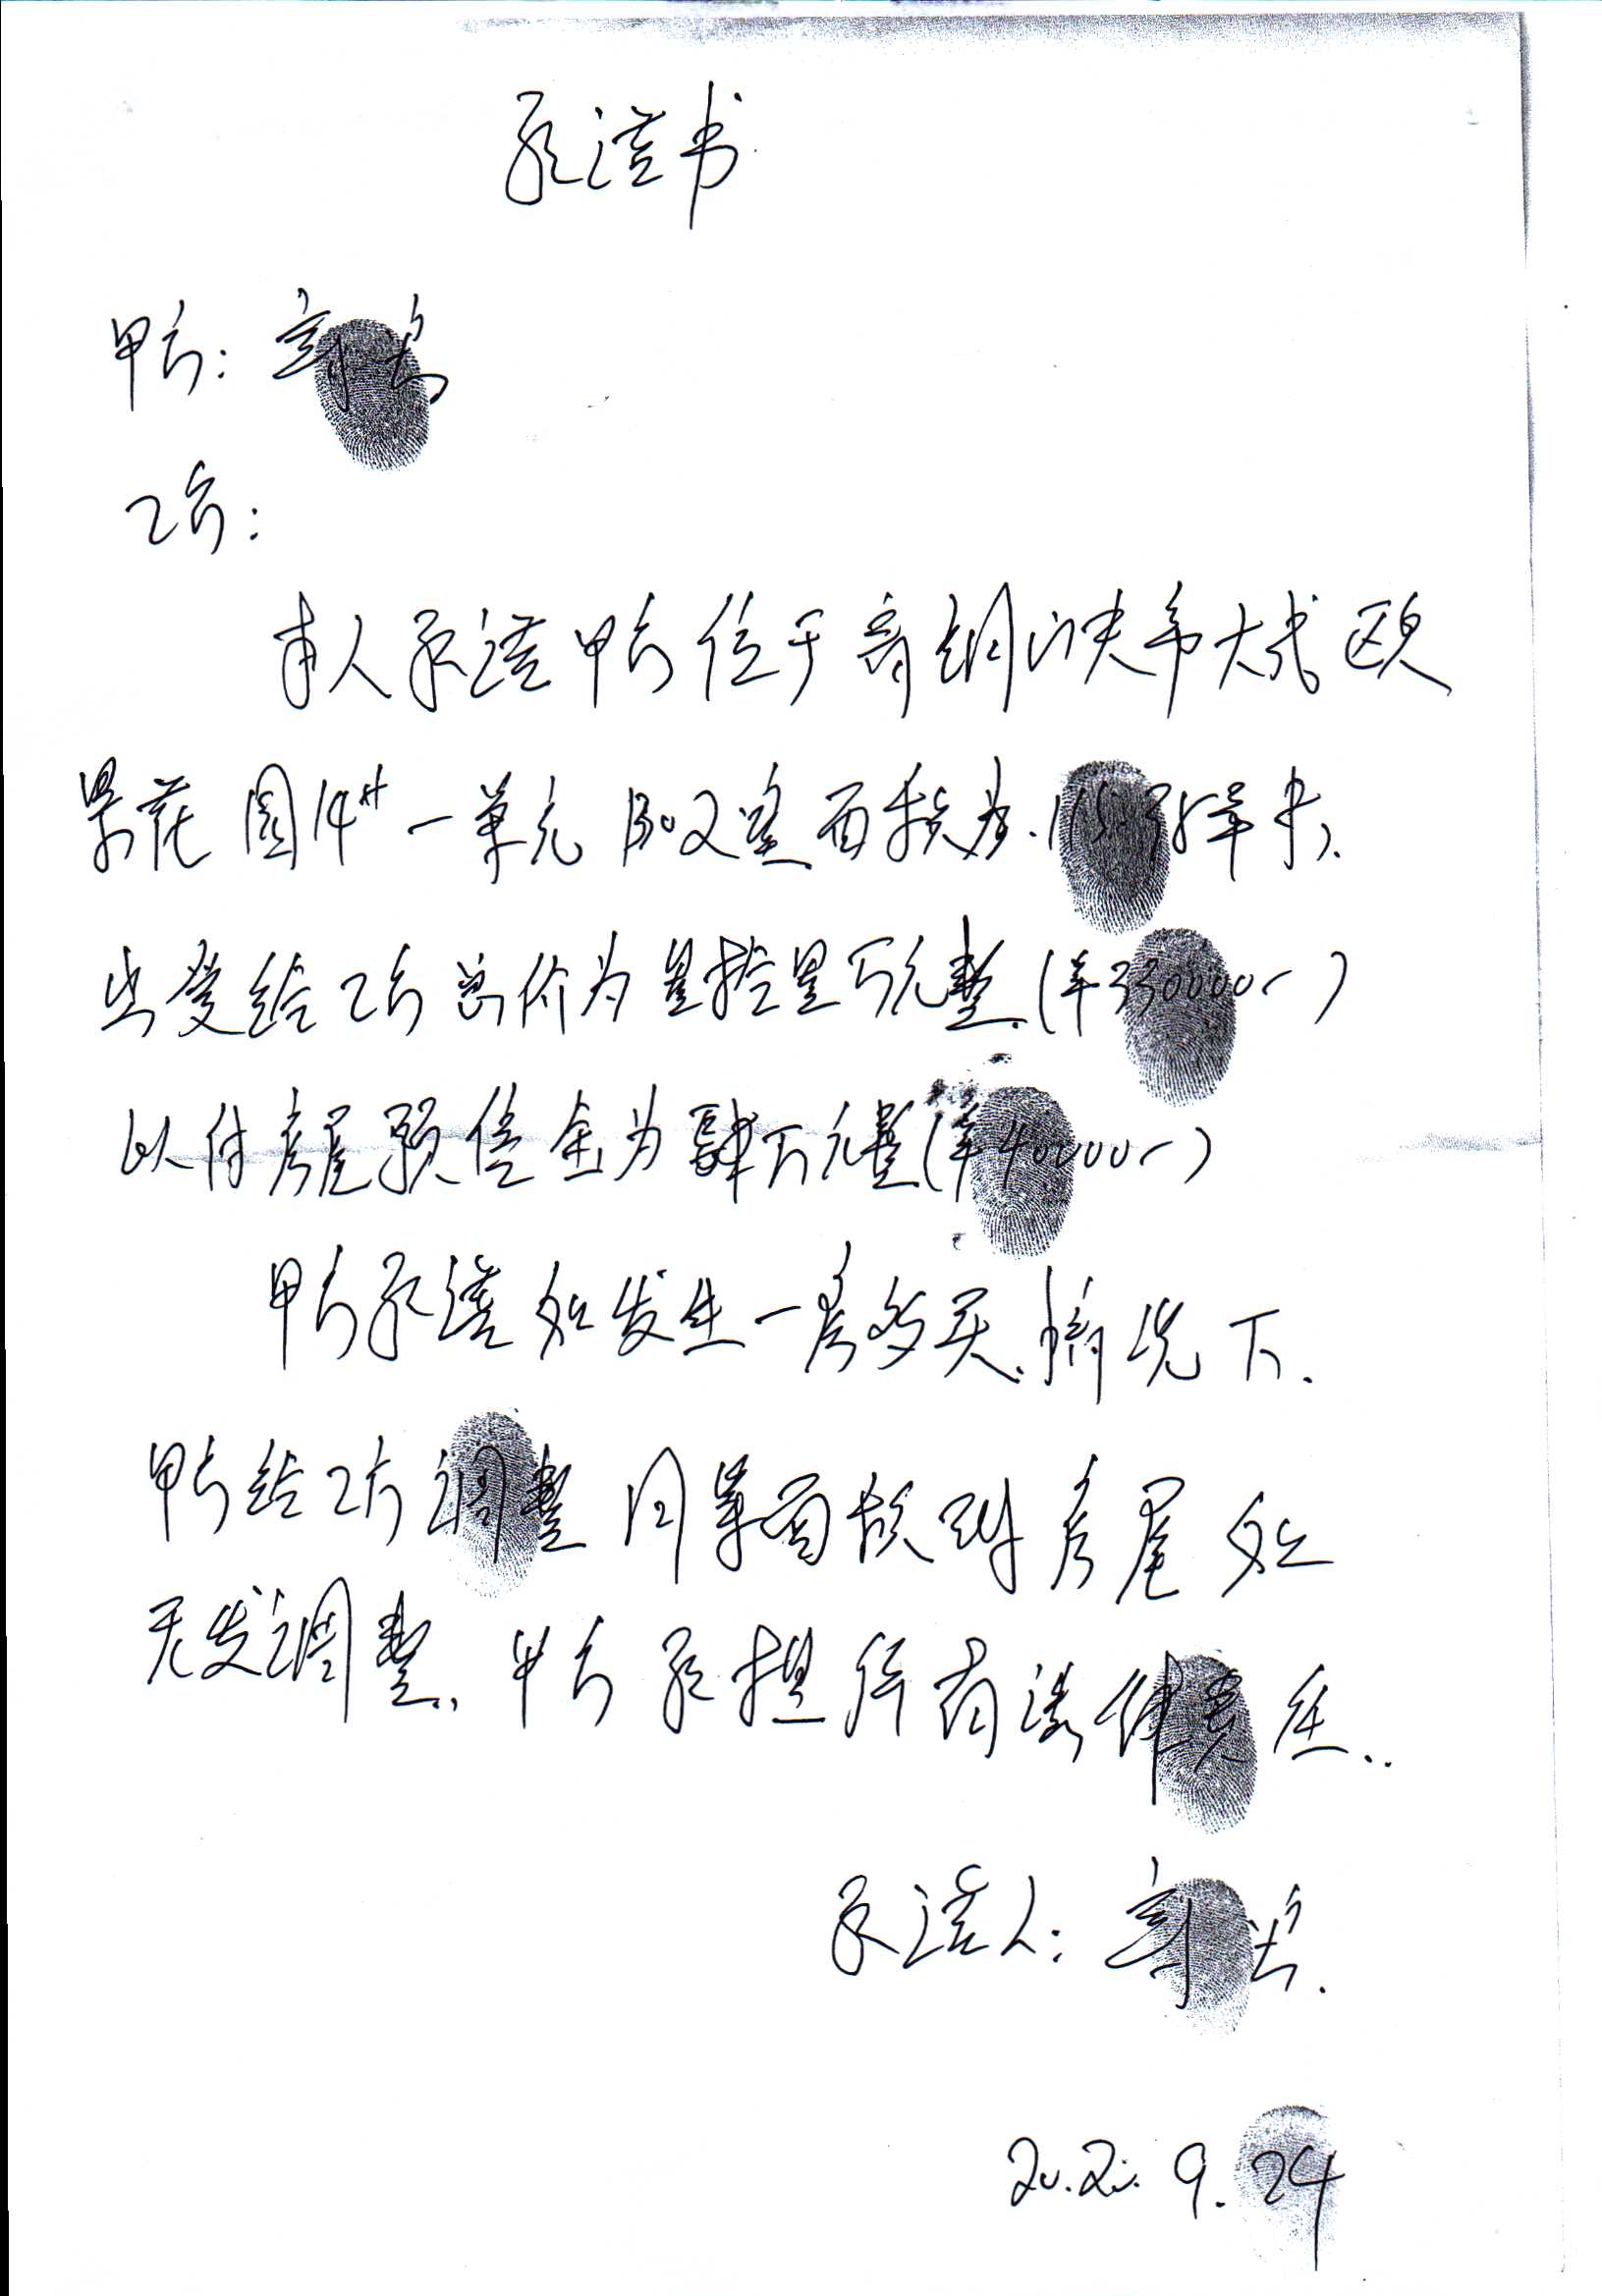 承诺书
甲方:
乙方:
本人承诺甲方位于青铜峡市大武欧
景花园14#一单元1302室面积为.115.38平米.
出变给乙方总价为叁拾叁万元整.(￥330000-)
以付房屋预信金为肆万元整(￥40000-)
甲方承诺如发生一房多买.情况下.
甲方给乙方调整同等面积的房屋如
无发调整.甲方承担所有法律责任..
承诺人:
20.20. 9. 24